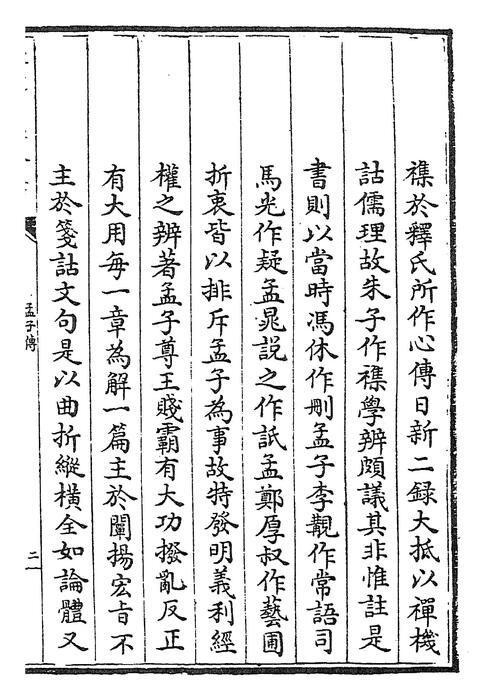 襍於釋氏所作心傳日新二録大抵以禪機
詁儒理故朱子作襍學辨頗議其非惟註是
書則以當時馮休作刪孟子李覯作常語司
馬光作疑孟晁說之作詆孟鄭厚叔作藝圃
折衷皆以排斥孟子為事故特發明義利經
權之辨著孟子尊王賤霸有大功撥亂反正
有大用每一章為解一篇主於闡揚宏旨不
主於箋詁文句是以曲折縱橫全如論體又
孟子傳
二